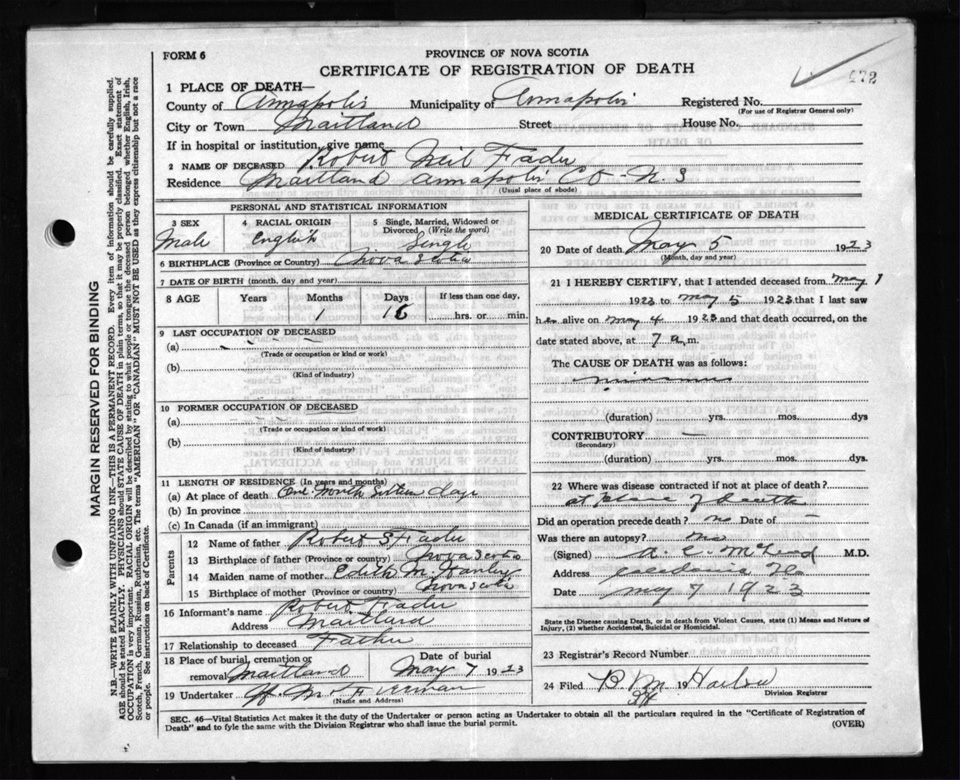 FORM 6
PROVINCE OF NOVA SCOTIA
CERTIFICATE OF REGISTRATION OF DEATH
1 PLACE OF DEATH—
County of Annapolis Municipality of Annapolis Registered No.
(For use of Registrar General only)
City or Town Maitland Street House No.
If in hospital or institution, give name
2 NAME OF DECEASED Robert Neil Fader
Residence Maitland Annapolis Co - N. S
(Usual place of abode)
PERSONAL AND STATISTICAL INFORMATION
3 SEX Male
4 RACIAL ORIGIN English
5 Single, Married, Widowed or Divorced (Write the word) Single
6 BIRTHPLACE (Province or Country) Nova Scotia
7 DATE OF BIRTH (month, day and year)
8 AGE Years Months Days If less than one day,
1 16 hrs. or min.
9 LAST OCCUPATION OF DECEASED
(a)
(Trade or occupation or kind or work)
(b)
(Kind of industry)
10 FORMER OCCUPATION OF DECEASED
(a)
(Trade or occupation or kind or work)
(b)
(Kind of industry)
11 LENGTH OF RESIDENCE (In years and months)
(a) At place of death One Month Sixteen days
(b) In province
(c) In Canada (if an immigrant)
Parents
12 Name of father Robert S Fader
13 Birthplace of father (Province or country) Nova Scotia
14 Maiden name of mother Edith M. Hanley
15 Birthplace of mother (Province or country) Nova Scotia
16 Informant's name Robert Fader
Address Maitland
17 Relationship to deceased Father
18 Place of burial, cremation or removal Maitland Date of burial May 7 1923
19 Undertaker
(Name and Address)
MEDICAL CERTIFICATE OF DEATH
20 Date of death May 5 1923
(Month, day and year)
21 I HEREBY CERTIFY, that I attended deceased from May 1
1923 to May 5 1923 that I last saw
h alive on May 4 1923 and that death occurred, on the
date stated above, at 7 a.m.
The CAUSE OF DEATH was as follows:
(duration) yrs. mos. dys
CONTRIBUTORY —
(Secondary)
(duration) yrs. mos. dys
22 Where was disease contracted if not at place of death?
at place of death
Did an operation precede death? no Date of –
Was there an autopsy? no
(Signed) McLeod M.D.
Address Caledonia
Date May 7 1923
State the Disease causing Death, or in death from Violent Causes, state (1) Means and Nature of Injury, (2) whether Accidental, Suicidal or Homicidal.
23 Registrar's Record Number
24 Filed 19
Division Registrar
SEC. 46—Vital Statistics Act makes it the duty of the Undertaker or person acting as Undertaker to obtain all the particulars required in the "Certificate of Registration of
Death" and to fyle the same with the Division Registrar who shall issue the burial permit.
(OVER)
MARGIN RESERVED FOR BINDING
N.B.—WRITE PLAINLY WITH UNFADING INK—THIS IS A PERMANENT RECORD. Every item of information should be carefully supplied.
AGE should be stated EXACTLY. PHYSICIANS should STATE CAUSE OF DEATH in plain terms, so that it may be properly classified. Exact statement of
OCCUPATION is very important. RACIAL ORIGIN will be described by stating to what people or tongue the deceased person belonged whether English, Irish,
Scotch, French, German, Russian, Ruthenian, etc. The terms "AMERICAN" OR "CANADIAN" MUST NOT BE USED as they express citizenship but not a race
or people. See instructions on back of Certificate.